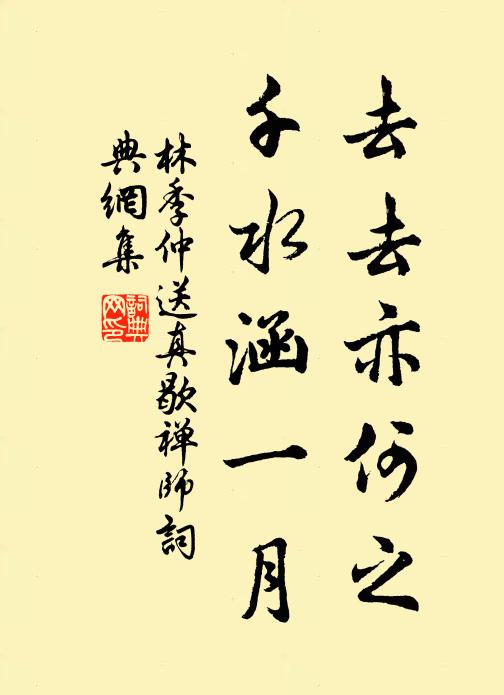 去去亦何之
千水涵一月
林季仲送真歇禅師詞
典網集
詞典网印